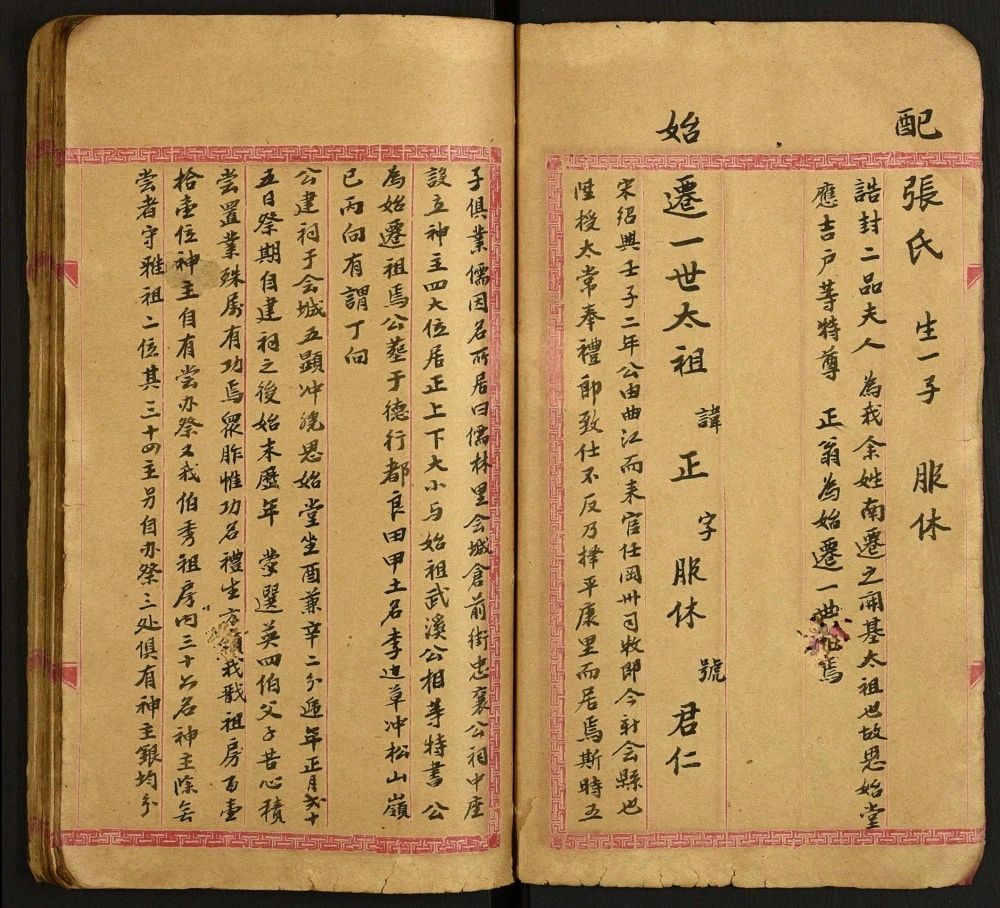 配 張氏 生一子 服休
誥封二品夫人 為我余姓南遷之開基太祖也故思始堂
應吉户等特尊 正翁為始遷一世祖焉
始遷一世太祖 諱正 字服休 號君仁
宋紹興壬子二年公由曲江而来官任岡州司牧即今新会縣也
陞授太常奉禮郎致仕不反乃擇平康里而居焉斯時五
子俱業儒因名所居曰儒林里会城倉前街忠襄公祠中座
設立神主四大位居正上下大小与始祖武溪公相等特書 公
為始遷祖焉公墓于德行都良田甲土名李边草冲松山嶺
已丙向有謂丁向
公建祠于会城五顯冲晓思始堂坐酉兼辛二分遞年正月弍十
五日祭期自建祠之後始末歷年 蒙選英四伯父子苦心積
尝置業殊属有功焉眾胙惟功名禮生方領我戬祖房百壹
拾壹位神主自有尝办祭又我伯秀祖房内三十六名神主除無
尝者守雅祖二位其三十四主另自办祭三处俱有神主銀均分